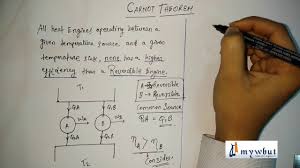 CARNOT THEOREM
All heat Engines operating between a
given temperature source and a given
temperature sink, none has a higher
efficiency than a Reversible Engine.
T1
A → Irreversible
B → Reversible
Common Source
Q1A = Q1B
ηA > ηB
Consider
Q1A
Q1B
A
WA
B
WB
Q2A
Q2B
T2
mywbut